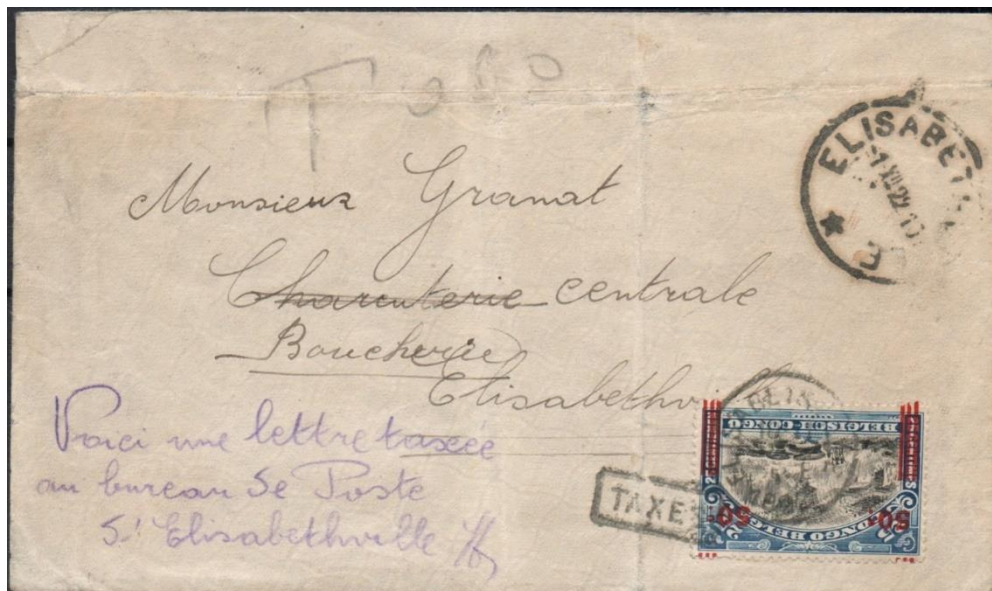 T 0.60
ELISABETH
1 XII 22
Monsieur Granat
Charcuterie centrale
Boucherie
Elisabethville
Voici une lettre taxée
au bureau de Poste
d'Elisabethville
TAXES
BELGISCH-CONGO
CONGO BELGE
50c 50c